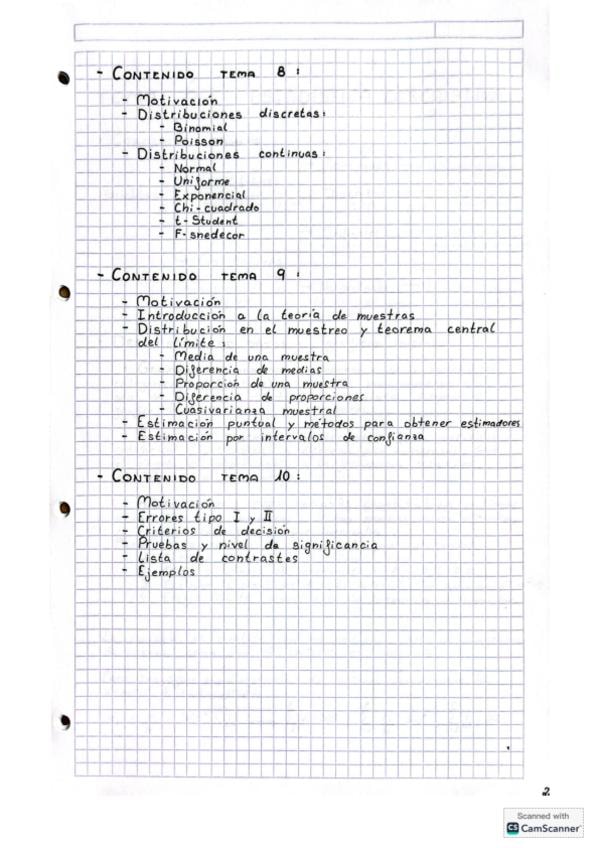 - CONTENIDO TEMA 8:
- Motivación
- Distribuciones discretas:
- Binomial
- Poisson
- Distribuciones continuas:
- Normal
- Uniforme
- Exponencial
- Chi-cuadrado
- t-Student
- F-snedecor
- CONTENIDO TEMA 9:
- Motivación
- Introducción a la teoría de muestras
- Distribución en el muestreo y teorema central
del límite:
- Media de una muestra
- Diferencia de medias
- Proporción de una muestra
- Diferencia de proporciones
- Cuasivarianza muestral
- Estimación puntual y métodos para obtener estimadores
- Estimación por intervalos de confianza
- CONTENIDO TEMA 10:
- Motivación
- Errores tipo I y II
- Criterios de decisión
- Pruebas y nivel de significancia
- Lista de contrastes
- Ejemplos
2
Scanned with
CS CamScanner